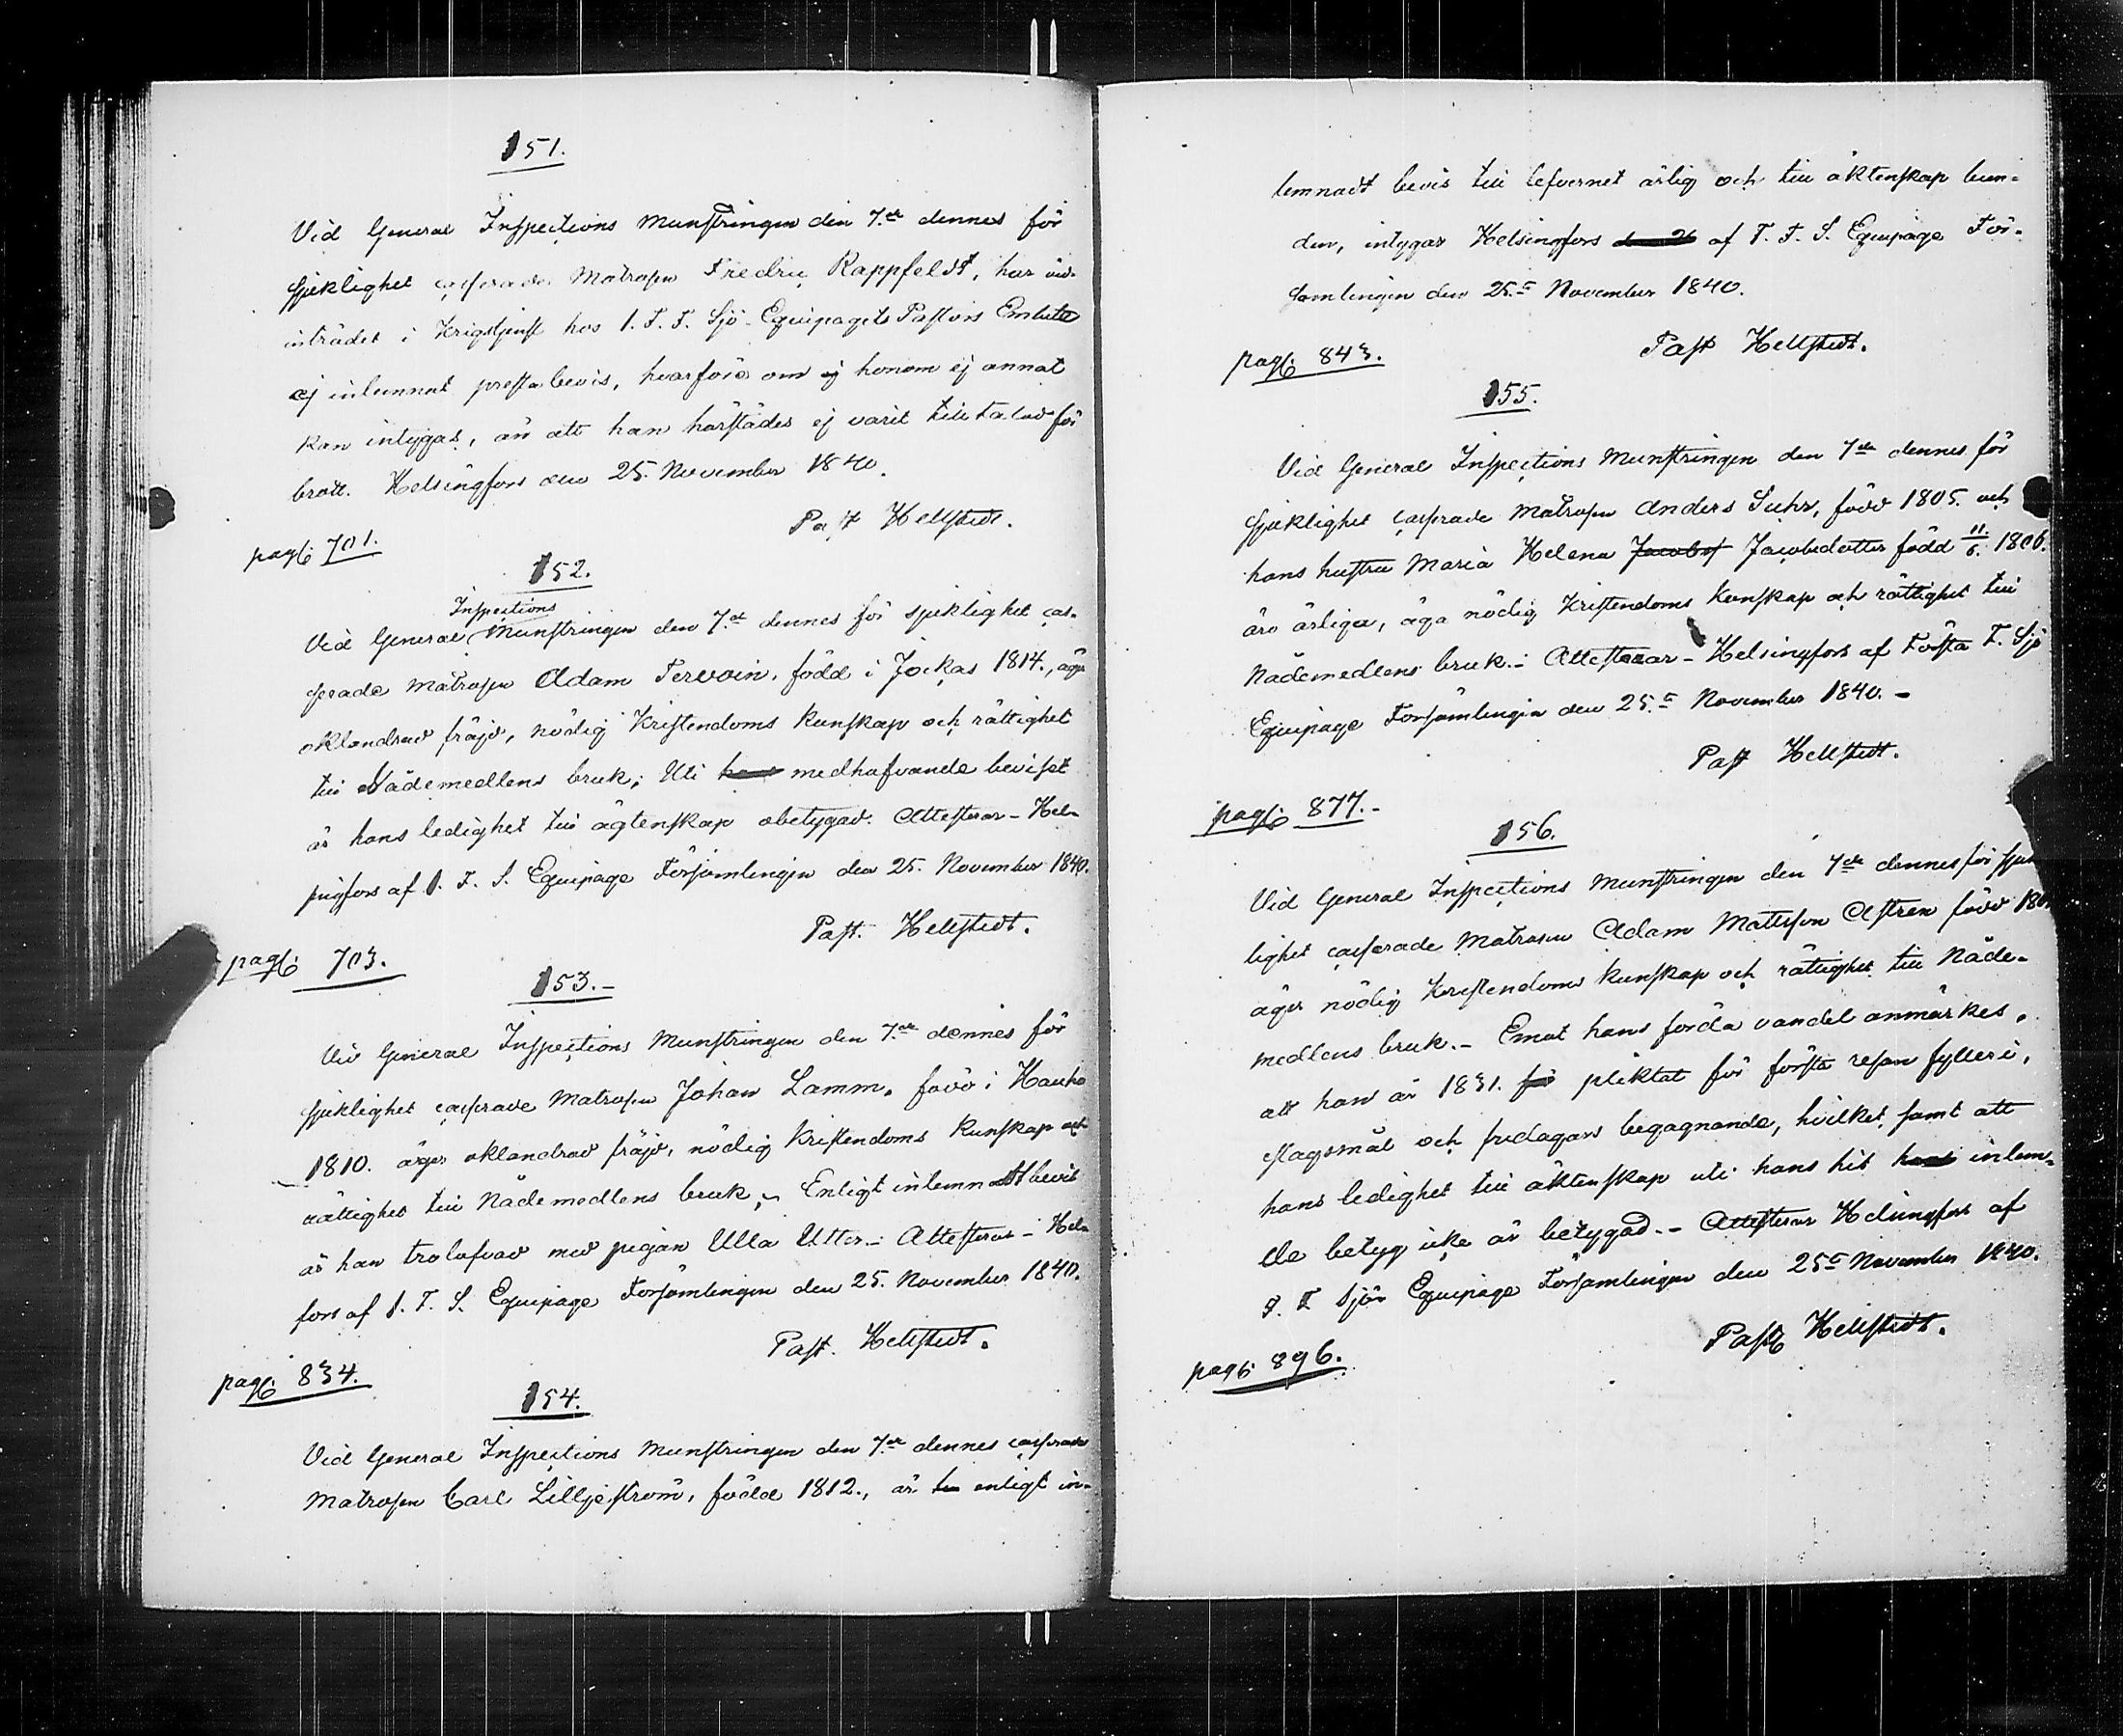 151.
Vid General Inspections Munstringen den 7.de dennes för
sjuklighet casserade Matrosen Fredric Rappfeldt, har vid
inträdet i Krigstjenst hos 1. F. F. Sjö-Equipagets Pastors Embete
ej inlemnat prestabevis, hvarföre om ej honom ej annat
kan intygas, än att han härstädes ej varit tilltalad för
brott. Helsingfors den 25. November 1840.
Past Hellstedt.
pag: 701.
152.
Inspections
Vid General Munstringen den 7.de dennes för sjuklighet cas-
serade Matrosen Adam Tervoin, född i Jockas 1814., äger
oklandrad fräjd, nödig Kristendoms kunskap och rättighet
till Nådemedlens bruk; Uti hans medhafvande beviset
är hans ledighet till ägtenskap obetygad. Attesterar - Hel-
singfors af 1. F. S. Equipage Församlingen den 25. November 1840.
Past. Hellstedt.
pag: 703.
153.-
Vid General Inspections Munstringen den 7.de dennes för
sjuklighet casserade Matrosen Johan Lamm. född i Hauho
1810. äger oklandrad fräjd, nödig Kristendoms kunskap och
rättighet till Nådemedlens bruk; Enligt inlemnadt bevis
är han trolofvad med pigan Ulla Utter.- Attesterar - Hel-
fors af 1. F. S. Equipage Församlingen den 25. November 1840.
Past. Hellstedt.
pag: 834.
154.
Vid General Inspections Munstringen den 7.de dennes casserade
Matrosen Carl Lilljeström, född 1812., är enligt in-
lemnadt bevis till lefvernet ärlig och till äktenskap bun-
den, intygar Helsingfors af F. F. S. Equipage För-
samlingen den 25.e November 1840.
Past Hellstedt.
pag: 843.
155.
Vid General Inspections Munstringen den 7de dennes för
sjuklighet casserade Matrosen Anders Suhr, född 1805. och
hans hustru Maria Helena Jacobsd Jacobsdotter född 11/6. 1806.
äro ärliga, äga nödig Kristendoms kunskap och rättighet till
Nådemedlens bruk.- Attesterar - Helsingfors af Första F. Sjö
Equipage Församlingen den 25.e November 1840.-
Past Hellstedt.
pag: 877.-
156.
Vid General Inspections Munstringen den 7de dennes för sjuk
lighet casserade Matrosen Adam Mattsson Astren född
äger nödig Kristendoms kunskap och rättighet till Nåde-
medlens bruk.- Emot hans förda vandel anmärkes,
att han år 1831. för pliktat för första resan fylleri,
slagsmål och fridagars begagnande, hvilket, samt att
hans ledighet till äktenskap uti hans hit hans inlem-
de betyg icke är betygad.- Attesterar Helsingfors af
F. F Sjö Equipage Församlingen den 25e November 1840.
Past Hellstedt.
pag: 896.